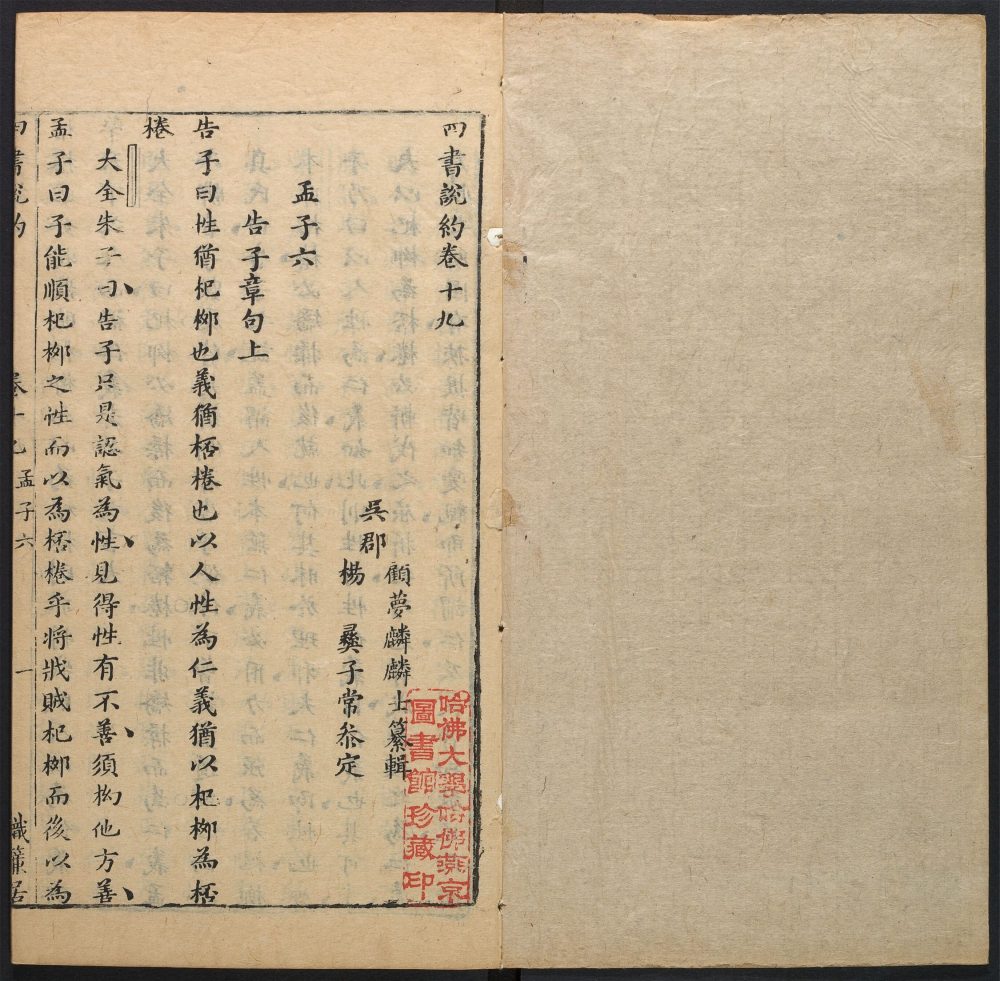 四書說約卷十九
吳郡
顧夢麟麟士纂輯
楊彞子常叅定
孟子六
告子章句上
告子曰性猶杞桞也義猶桮棬也以人性為仁義猶以杞桞為桮
棬
大全朱子曰告子只是認氣為性見得性有不善須拗他方善
孟子曰子能順杞桞之性而以為桮棬乎將戕賊杞桞而後以為
四書說約
卷十九
孟子六
一
織簾居
哈佛大學哈佛燕京
圖書館珍藏印